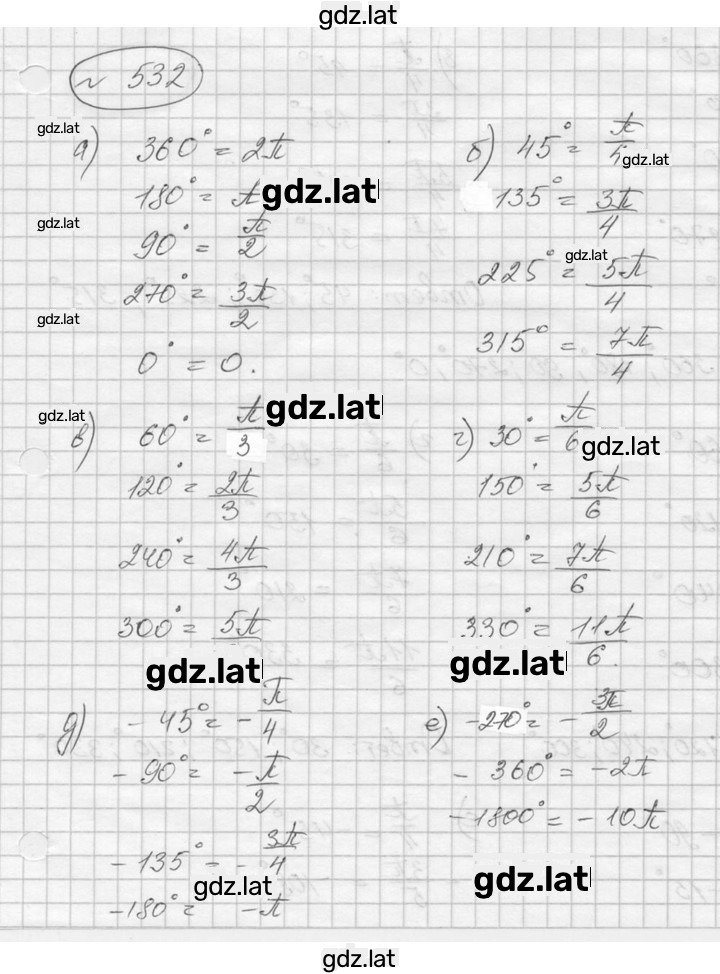 gdz.lat
№ 532
gdz.lat
а) 360° = 2π
180° = π gdz.lat
gdz.lat
90° = π/2
270° = 3π/2
gdz.lat
0° = 0.
б) 45° = π/4
gdz.lat
135° = 3π/4
gdz.lat
225° = 5π/4
315° = 7π/4
gdz.lat
gdz.lat
в) 60° = π/3
120° = 2π/3
240° = 4π/3
300° = 5π
gdz.lat
г) 30° = π/6
gdz.lat
150° = 5π/6
210° = 7π/6
330° = 11π/6.
gdz.lat
д) -45° = -π/4
-90° = -π/2
-135° = -3π/4
gdz.lat
-180° = -π
е) -270° = -3π/2
-360° = -2π
-1800° = -10π
gdz.lat
gdz.lat